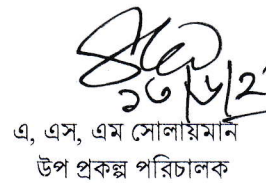 এ, এস, এম সোলায়মান
উপ প্রকল্প পরিচালক